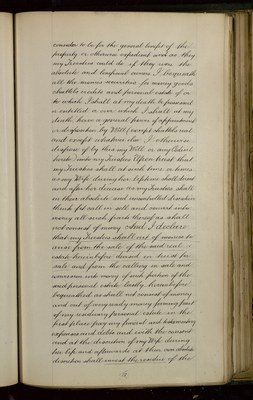 consider to be for the general benefit of the
property or otherwise expedient and as they
my Trustees could do if they were the
absolute and beneficial owners I bequeath
all the money securities for money goods
chattels credits and personal estate of or
to which I shall at my death be possessed
or entitled or over which I shall at my
death have a general power of appointment
or disposition by Will (except chattels real
and except whatever else I otherwise
dispose of by this my Will or any Codicil
hereto) unto my Trustees Upon trust that
my Trustees shall at such time or times
as my Wife during her lifetime shall direct
and after her decease as my Trustees shall
in their absolute and uncontrolled discretion
think fit call in sell and convert into
money all such parts thereof as shall
not consist of money And I declare
that my Trustees shall out of moneys to
arise from the sale of the said real
estate hereinbefore devised in trust for
sale and from the calling in sale and
conversion into money of such portion of the
said personal estate lastly hereinbefore
bequeathed as shall not consist of money
and out of any ready money forming part
of my residuary personal estate in the
first place pay my funeral and testamentary
expenses and debts and with the consent
and at the discretion of my Wife during
her life and afterwards at their own absolute
discretion shall invest the residue of the